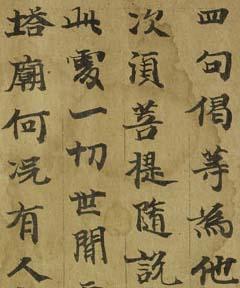 四句偈等為他
次須菩提隨說
此處一切世間
塔廟何况有人